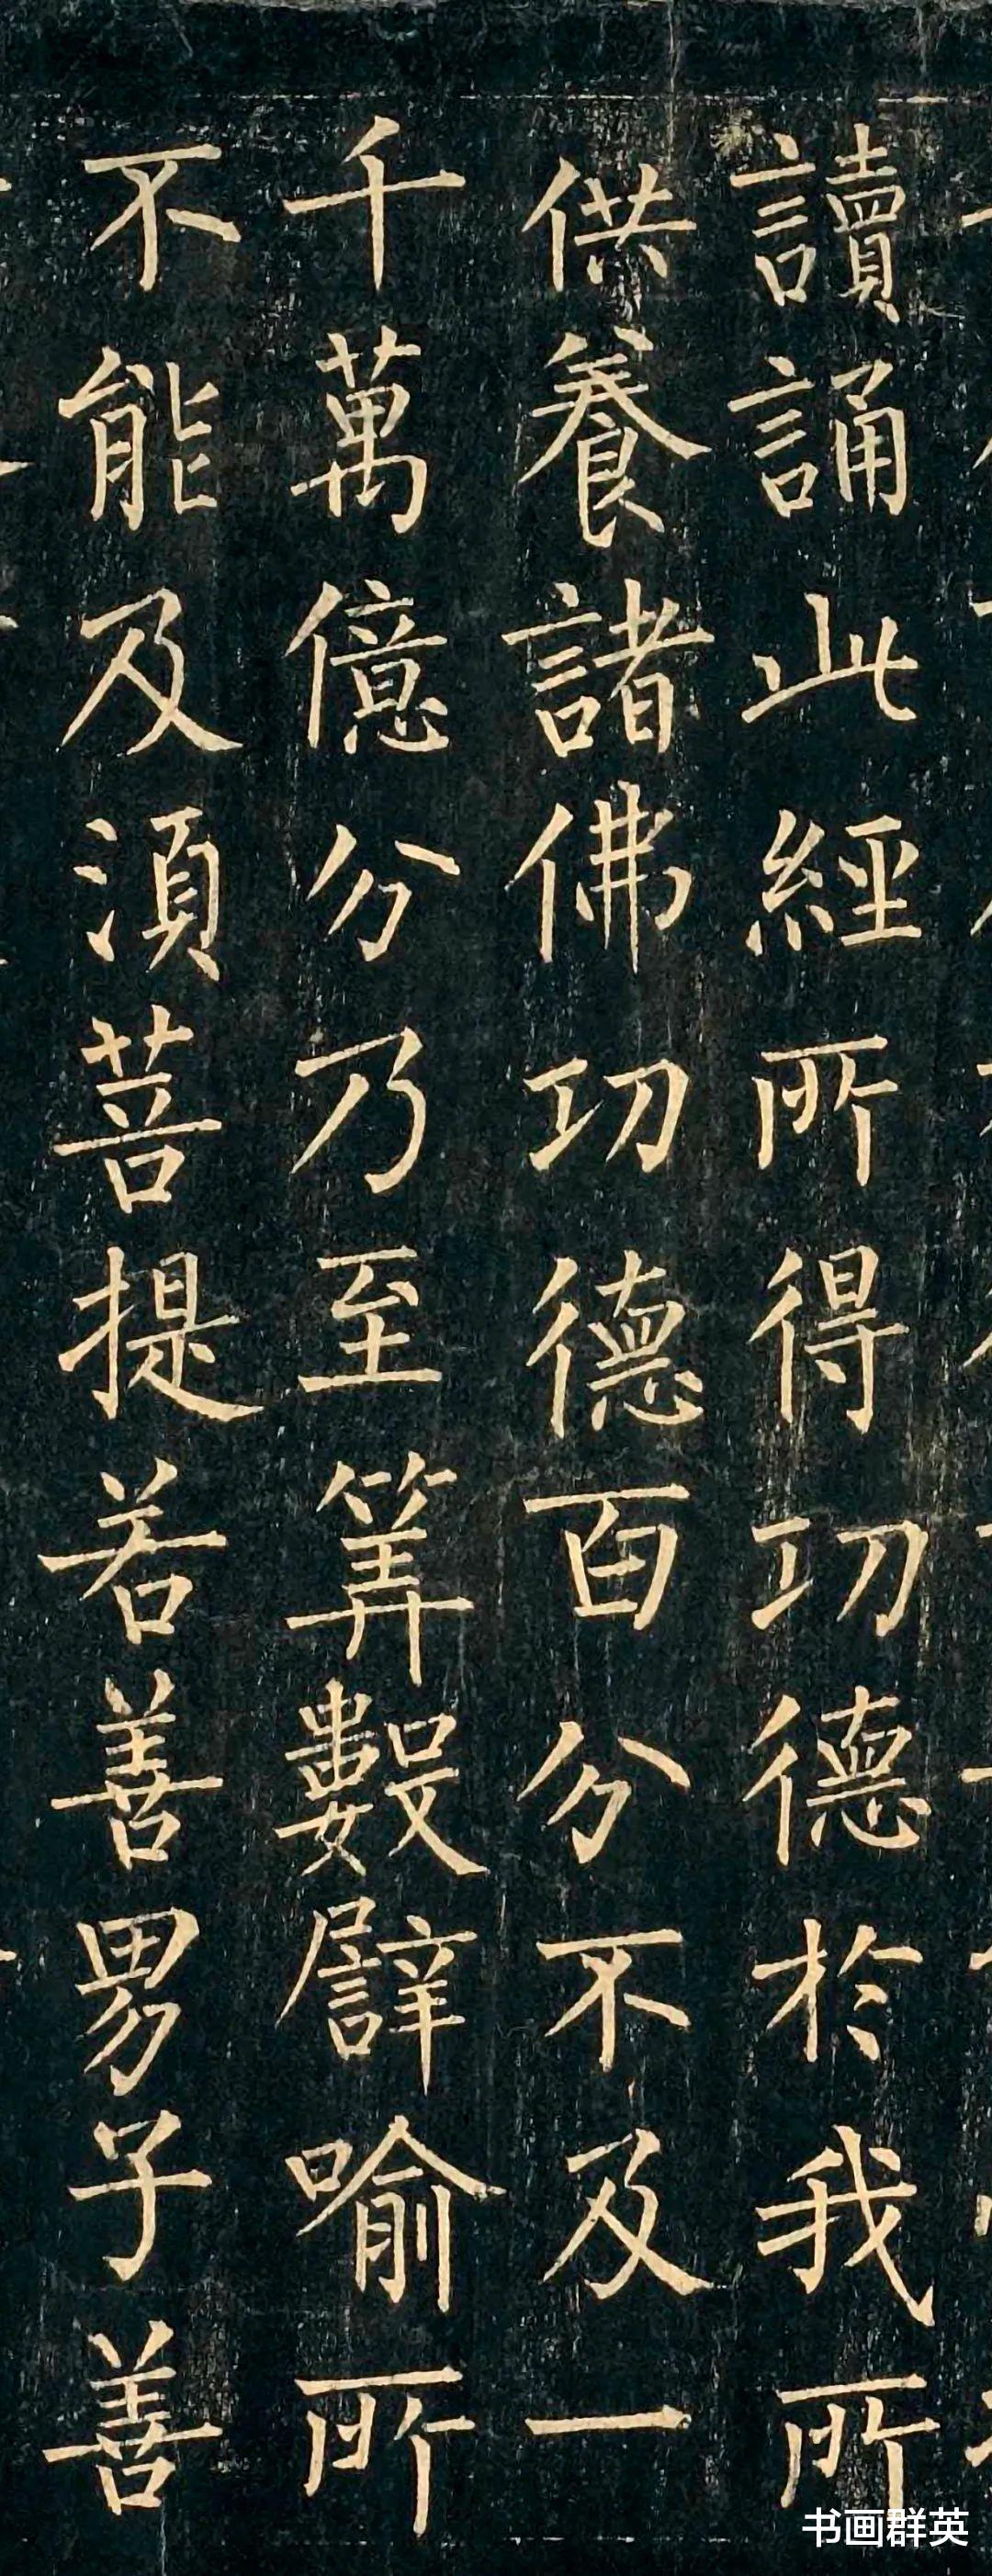 讀誦此經所得功德於我所
供養諸佛功德百分不及一
千萬億分乃至筭數譬喻所
不能及湏菩提若善男子善
书画群英